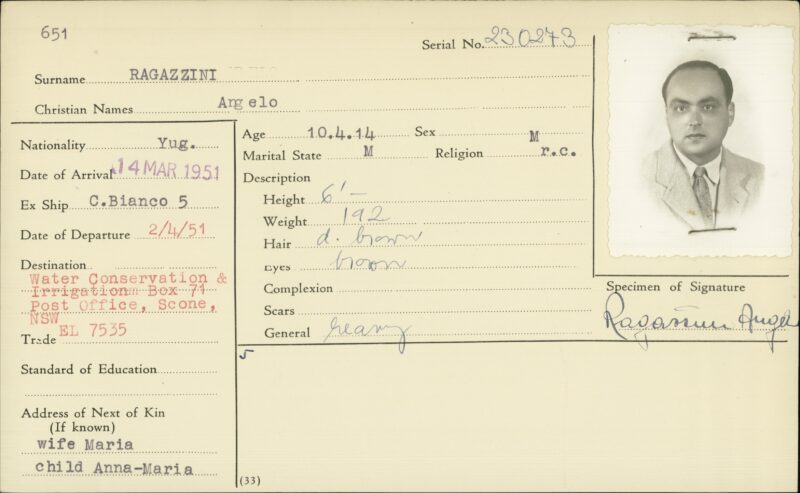 651
Serial No. 230273
Surname RAGAZZINI
Christian Names Angelo
Nationality Yug.
Date of Arrival 14 MAR 1951
Ex Ship C.Bianco 5
Date of Departure 2/4/51
Destination
Water Conservation &
Irrigation Box 71
Post Office, Scone,
NSW
Trade EL 7535
Standard of Education
Address of Next of Kin
(If known)
wife Maria
child Anna-Maria
Age 10.4.14 Sex M
Marital State M Religion r.c.
Description
Height 6'—
Weight 192
Hair d. brown
Eyes brown
Complexion
Scars
General heavy
5
(33)
Specimen of Signature
Ragazzini Angelo